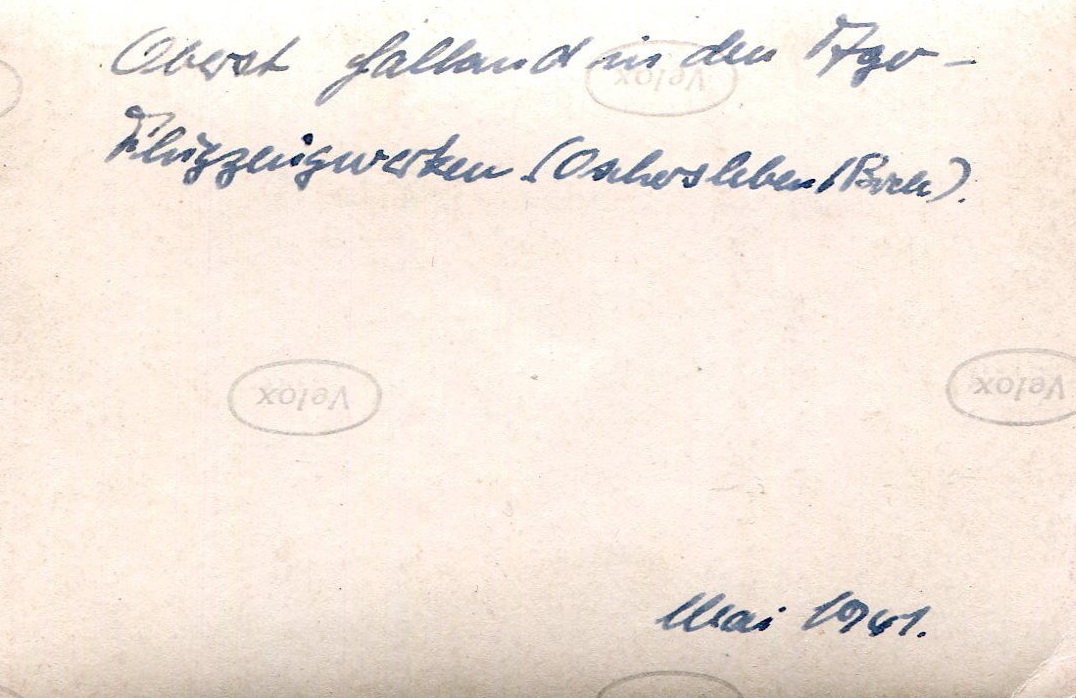 Oberst Galland in den Ago-
Velox
Flugzeugwerken (Oschersleben/Bode).
Velox
Velox
Mai 1941.